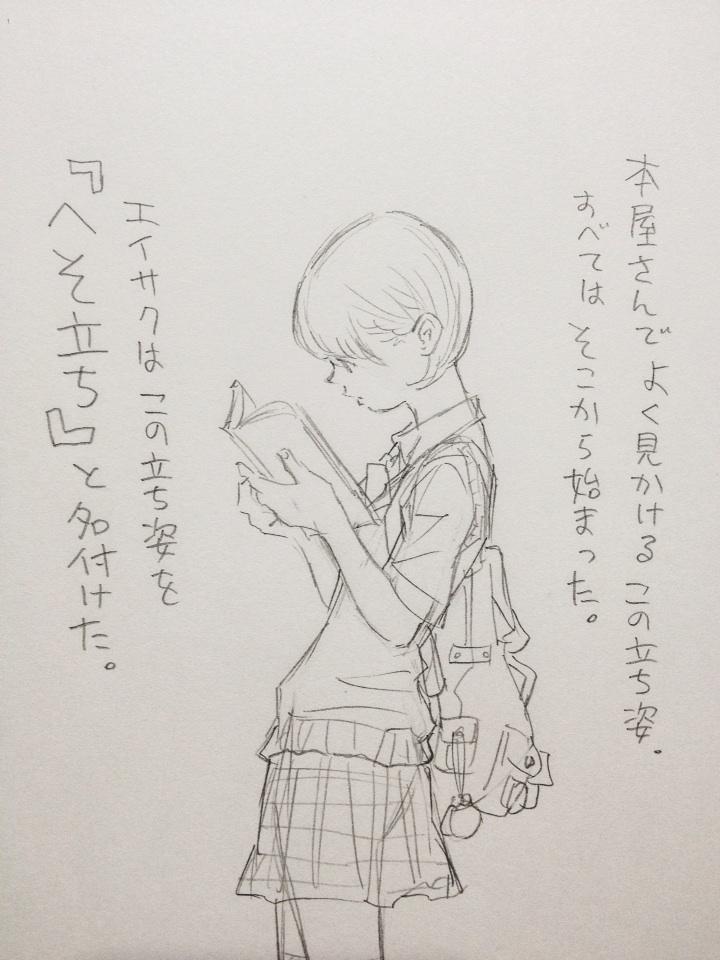 本屋さんでよく見かけるこの立ち姿。
すべてはそこから始まった。
エイサクはこの立ち姿を
『へそ立ち』と名付けた。